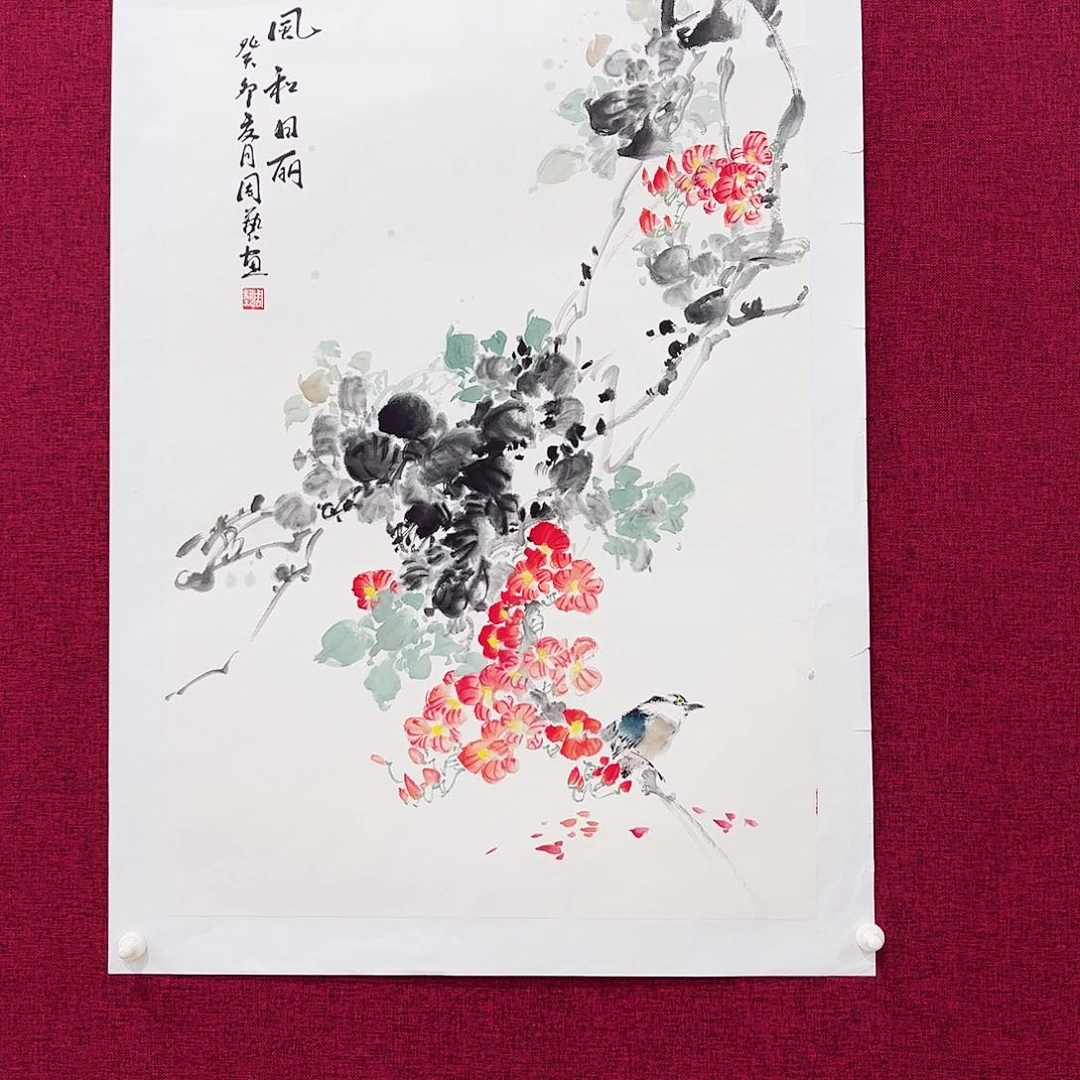 风和日丽
癸卯夏月周艺画